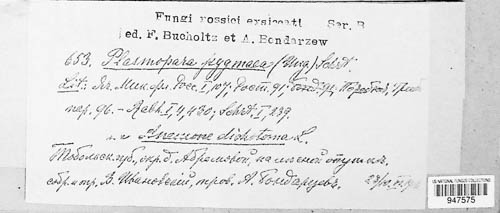 Fungi rossici exsiccati Ser. B
ed. F. Bucholtz et A. Bondarzew
653. Plasmopara pygmaea (Ung.) Schröt.
Lit.: Яч. Мик. фл. Росс. I, 107; Рост. 91; Бонд. 91;
пар. 96. - Rabh. I, 4, 430; Schröt. I, 239.
Anemone dichotoma L.
Тобольск. губ., окр. д. Абрамовой, на лесной опушке,
собр. и опр. В. Ивановский, пров. А. Бондарцев.
US NATIONAL FUNGUS COLLECTIONS
947575